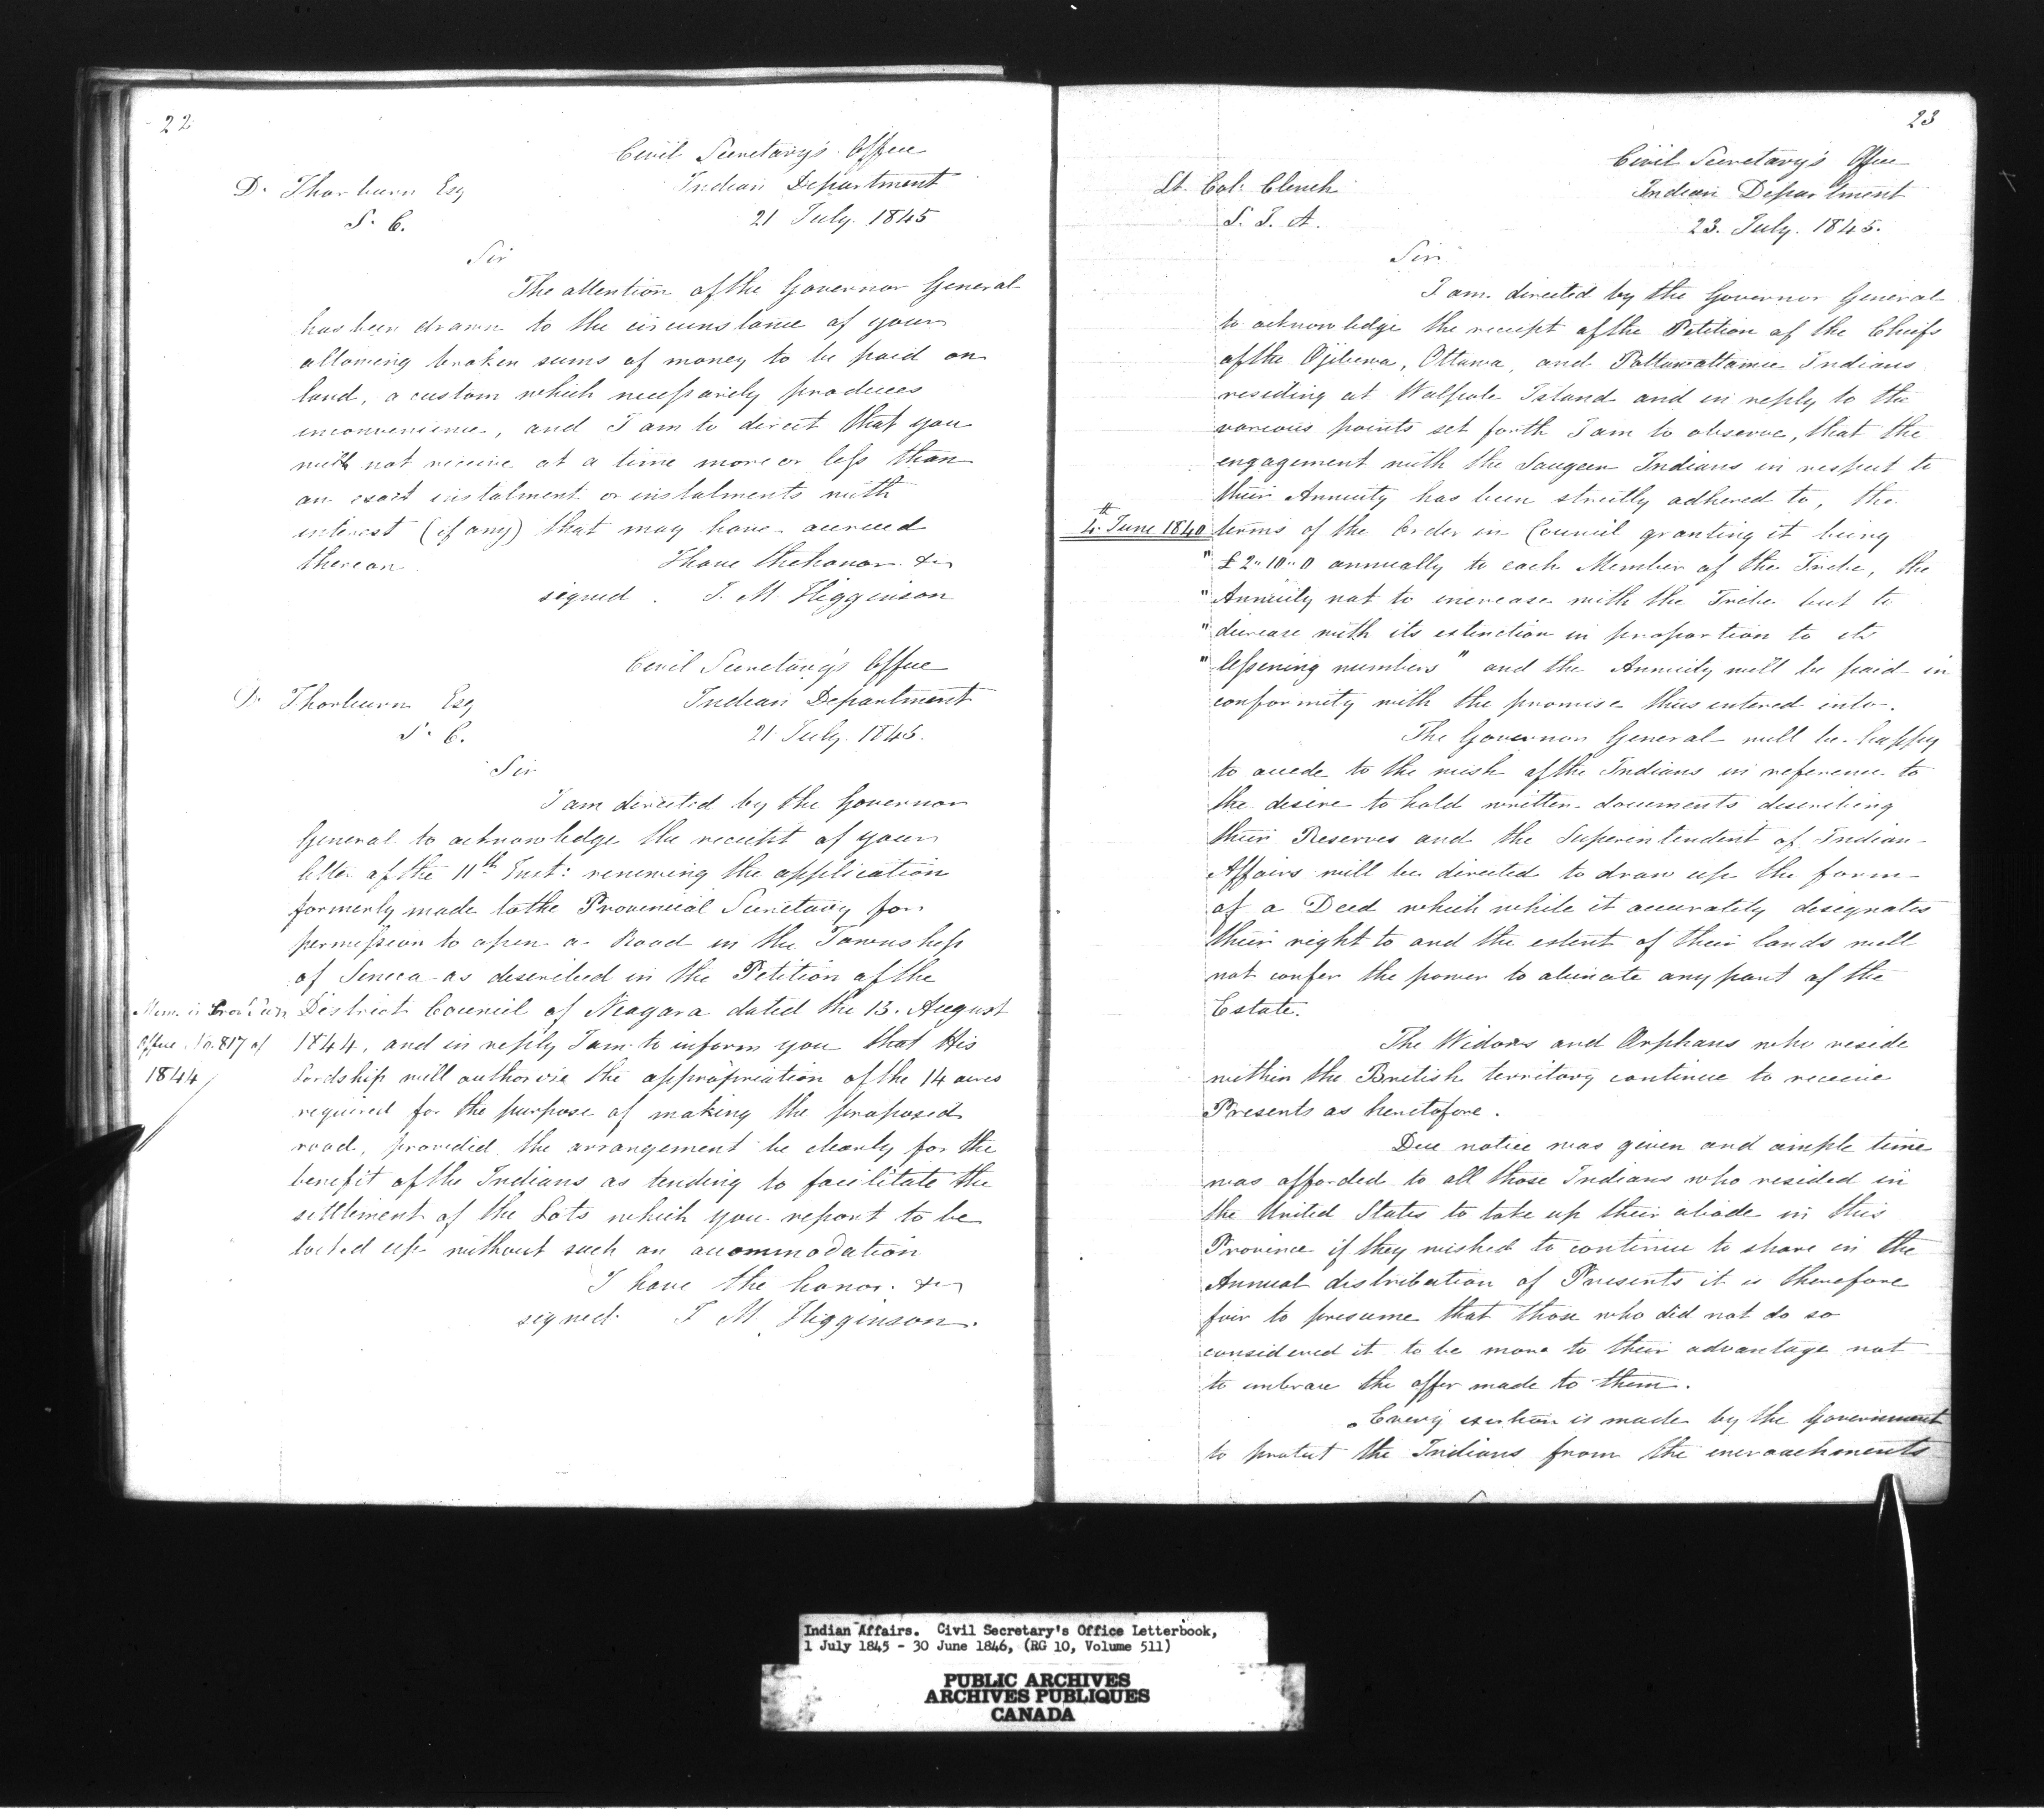 22
Civil Secretary's Office
D. Thorburn Esq Indian Department
S. C. 21 July. 1845
Sir
The attention of the Governor General
has been drawn to the circumstance of your
allowing broken sums of money to be paid on
land, a custom which necessarily produces
inconvenience, and I am to direct that you
will not receive at a time more or less than
an exact instalment or instalments with
interest (if any) that may have accrued
thereon I have the honor &c
signed. J. M. Higginson
Civil Secretary's Office
D. Thorburn Esq Indian Department
S. C. 21 July. 1845.
Sir
I am directed by the Governor
General to acknowledge the receipt of your
letter of the 11th Inst: renewing the application
formerly made to the Provincial Secretary for
permission to open a Road in the Township
of Seneca as described in the Petition of the
District Council of Niagara dated the 13. August
Mem. in
Office No. 817 of
1844
1844, and in reply I am to inform you that His
Lordship will authorize the appropriation of the 14 acres
required for the purpose of making the proposed
road, provided the arrangement be clearly for the
benefit of the Indians as tending to facilitate the
settlement of the Lots which you report to be
locked up without such an accommodation
I have the honor. &c
signed J M. Higginson.
23
Civil Secretary's Office
Lt. Col: Clench Indian Department
S. I. A. 23. July. 1845.
Sir
I am directed by the Governor General
to acknowledge the receipt of the Petition of the Chiefs
of the Ojibewa, Ottawa, and Pottawattamie Indians
residing at Walpole Island and in reply to the
various points set forth I am to observe, that the
engagement with the Saugeen Indians in respect to
their Annuity has been strictly adhered to, the
4th June 1840 terms of the Order in Council granting it being
" £2"10"0 annually to each Member of the Tribe, the
" Annuity not to increase with the Tribe but to
" decrease with its extinction in proportion to its
" lessening numbers" and the Annuity will be paid in
conformity with the promise thus entered into.
The Governor General will be happy
to accede to the wish of the Indians in reference to
the desire to hold written documents describing
their Reserves and the Superintendent of Indian
Affairs will be directed to draw up the form
of a Deed which while it accurately designates
their right to and the extent of their lands will
not confer the power to alienate any part of the
Estate.
The Widows and Orphans who reside
within the British territory continue to receive
Presents as heretofore.
Due notice was given and ample time
was afforded to all those Indians who resided in
the United States to take up their abode in this
Province if they wished to continue to share in the
Annual distribution of Presents it is therefore
fair to presume that those who did not do so
considered it to be more to their advantage not
to embrace the offer made to them.
Every exertion is made by the Government
to protect the Indians from the encroachments
Indian Affairs. Civil Secretary's Office Letterbook,
1 July 1845 - 30 June 1846, (RG 10, Volume 511)
PUBLIC ARCHIVES
ARCHIVES PUBLIQUES
CANADA